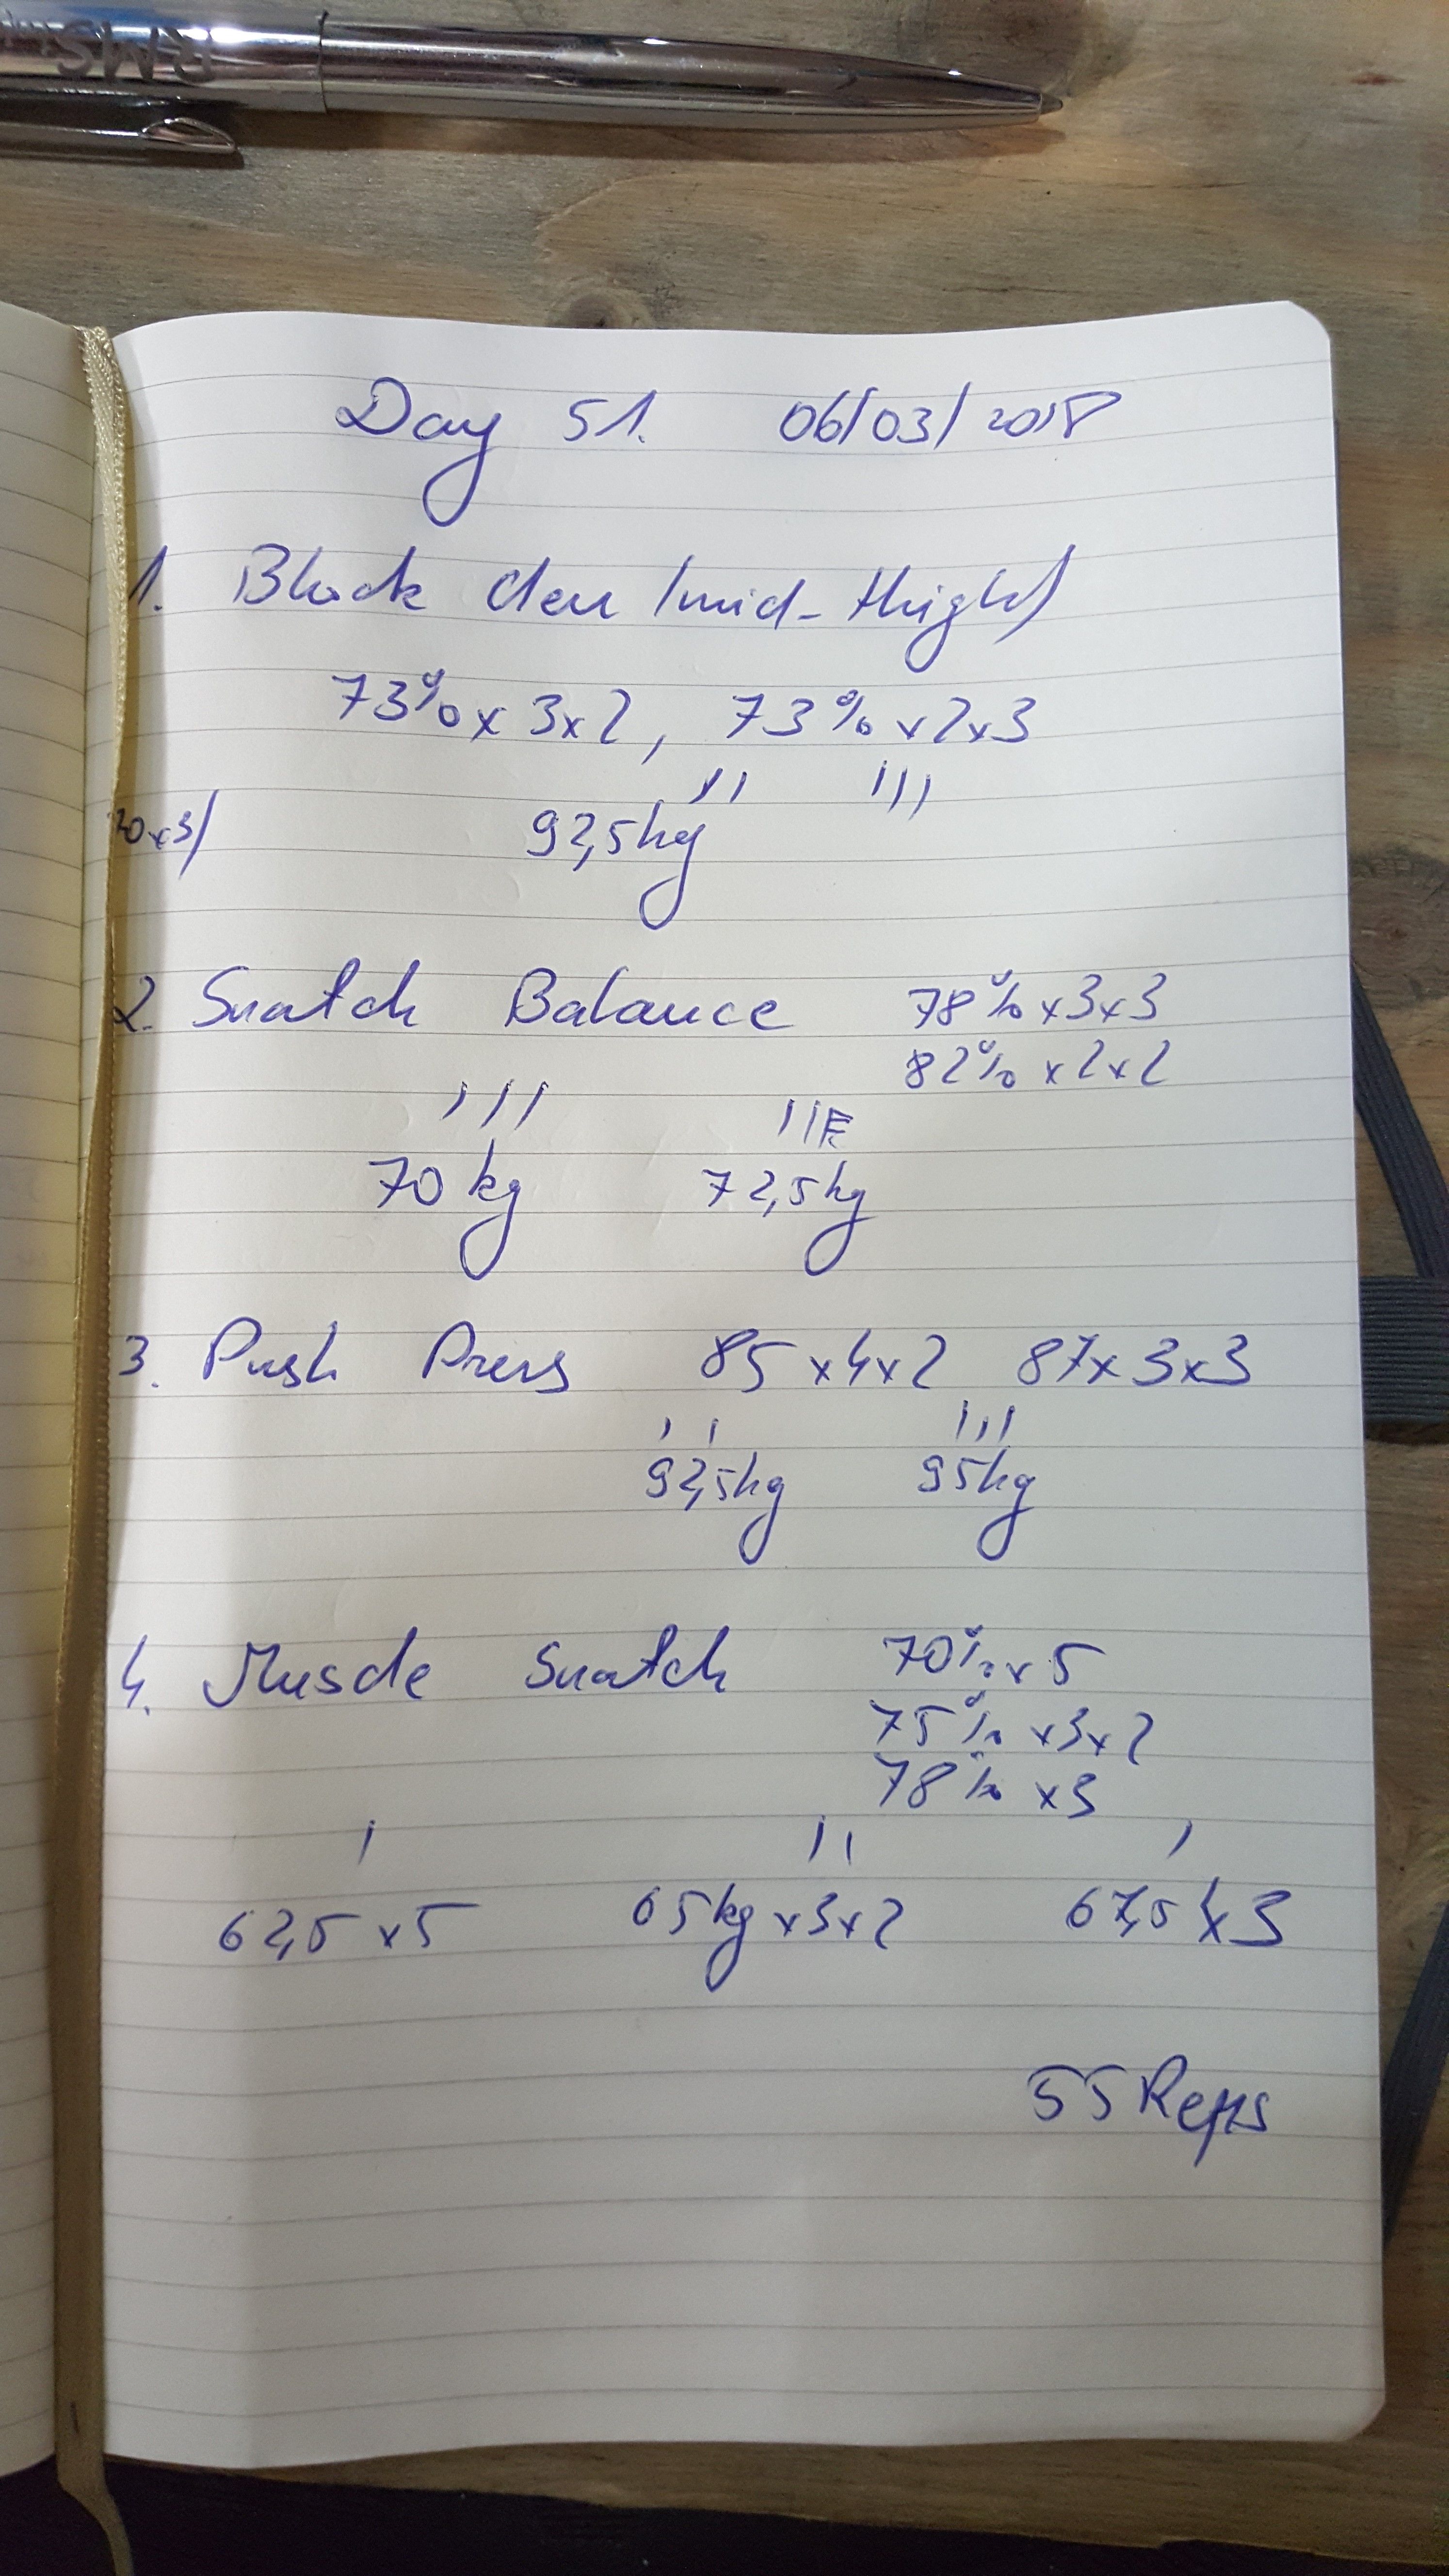 RMS
Day 51. 06/03/2018
1. Block clean (mid-thigh)
73% x 3x2, 73% x2x3
92,5kg
2. Snatch Balance 78% x3x3
82% x2x2
70kg 72,5kg
3. Push Press 85x4x2 87x3x3
92,5kg 95kg
4. Muscle Snatch 70% x5
75% x3x2
78% x3
62,5 x5 65kg x3x2 67,5 x3
55 Reps